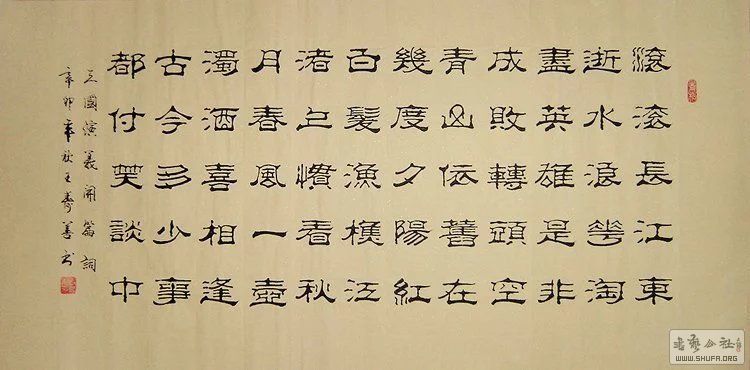 滾滾長江東
逝水浪花淘
盡英雄是非
成敗轉頭空
青山依舊在
幾度夕陽紅
白髮漁樵江
渚上慣看秋
月春風一壺
濁酒喜相逢
古今多少事
都付笑談中
三國演義開篇詞
辛卯年秋王壽善书
书艺公社
WWW.SHUFA.ORG